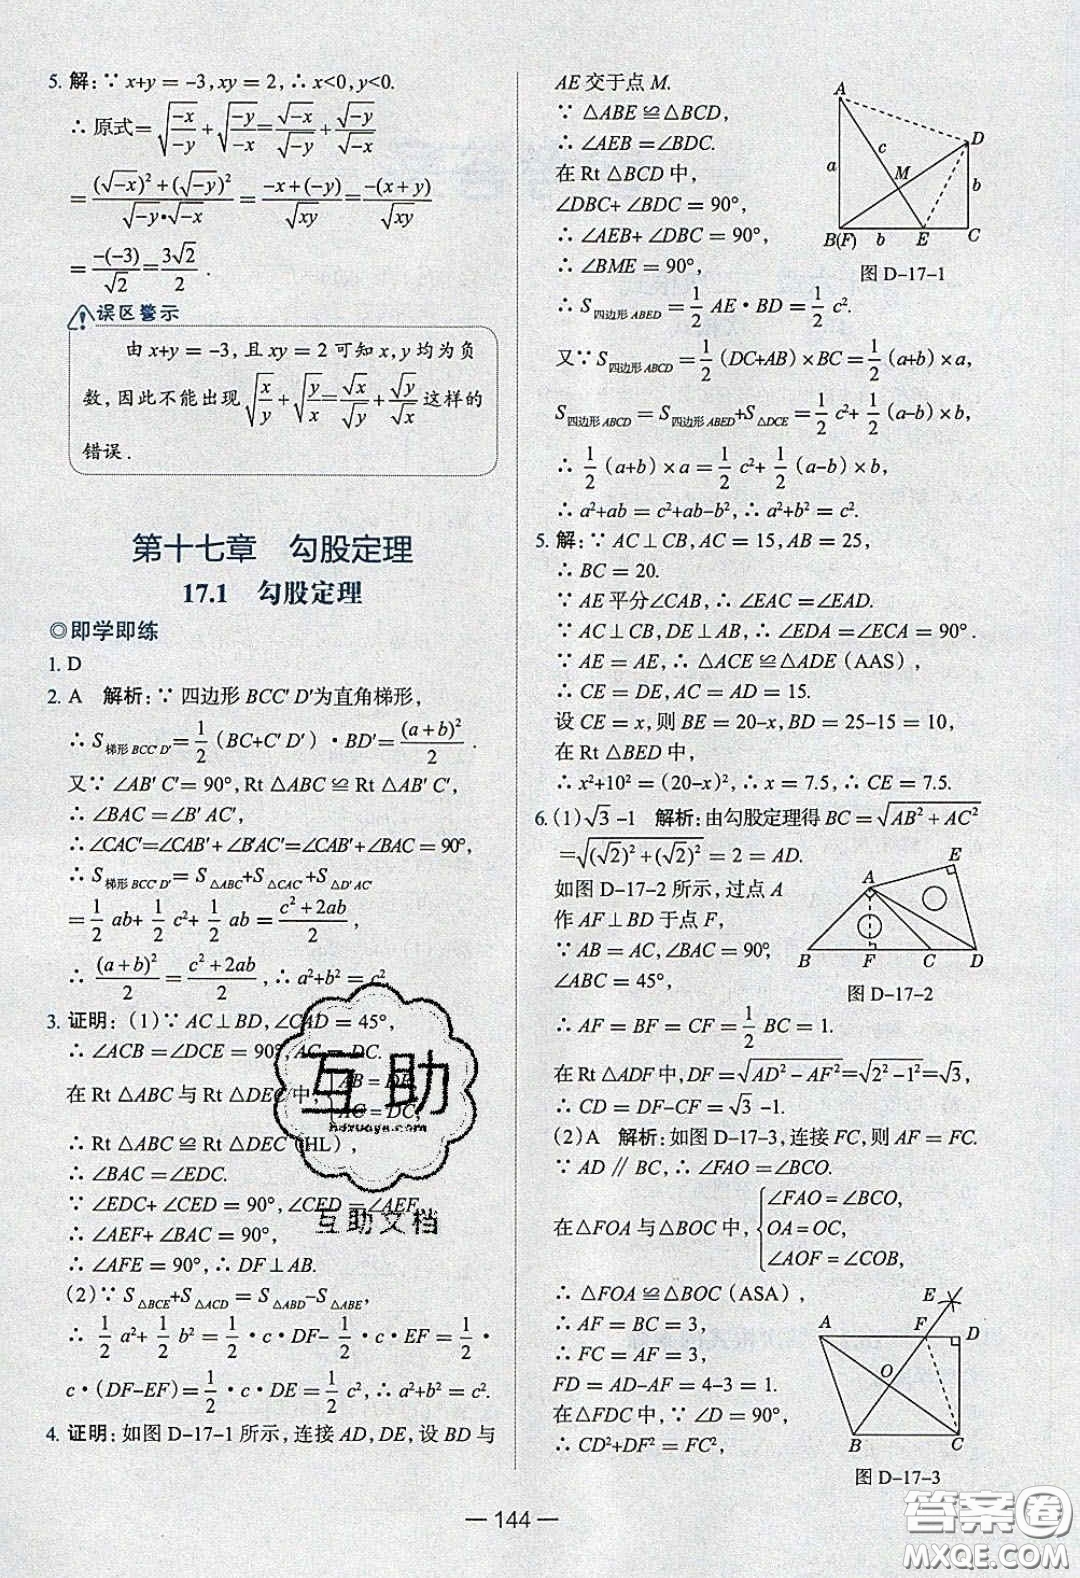 5. 解:∵ x+y = -3,xy = 2,∴ x<0,y<0.
∴ 原式=√(-x/-y)+√(-y/-x)=√-x/√-y+√-y/√-x
=((√-x)²+(√-y)²)/(√-y·√-x)=(-x+(-y))/√xy=(-(x+y))/√xy
=(-(-3))/√2=3√2/2.
误区警示
由 x+y = -3,且 xy = 2 可知 x,y 均为负
数,因此不能出现√(x/y)+√(y/x)=√x/√y+√y/√x这样的
错误.
第十七章 勾股定理
17.1 勾股定理
◎即学即练
1. D
2. A 解析:∵ 四边形 BCC′D′为直角梯形,
∴ S梯形BCC′D′=1/2(BC+C′D′)·BD′=(a+b)²/2.
又∵ ∠AB′C′=90°,Rt △ABC ≌ Rt △AB′C′,
∴ ∠BAC=∠B′AC′,
∴ ∠CAC′=∠CAB′+∠B′AC′=∠CAB′+∠BAC=90°,
∴ S梯形BCC′D′=S△ABC+S△CAC′+S△D′AC′
=1/2 ab+1/2 c²+1/2 ab=(c²+2ab)/2,
∴ (a+b)²/2=(c²+2ab)/2,∴ a²+b²=c².
3. 证明:(1)∵ AC⊥BD,∠CAD = 45°,
∴ ∠ACB =∠DCE = 90°,AC = DC.
在 Rt △ABC 与 Rt △DEC 中,{AB = DE, AC = DC,
∴ Rt △ABC ≌ Rt △DEC(HL),
∴ ∠BAC =∠EDC.
∵ ∠EDC+ ∠CED = 90°,∠CED =∠AEF,
∴ ∠AEF+ ∠BAC = 90°,
∴ ∠AFE = 90°,∴ DF⊥AB.
(2)∵ S△BCE+S△ACD = S△ABD-S△ABE,
∴ 1/2 a²+1/2 b² =1/2·c·DF-1/2·c·EF =1/2·
c·(DF-EF)=1/2·c·DE =1/2 c²,∴ a²+b² = c².
4. 证明:如图 D-17-1 所示,连接 AD,DE,设 BD 与
AE 交于点 M.
∵ △ABE ≌△BCD,
∴ ∠AEB =∠BDC.
在 Rt △BCD 中,
∠DBC+ ∠BDC = 90°,
∴ ∠AEB+ ∠DBC = 90°,
∴ ∠BME = 90°,
A
D
a
c
M
b
B(F)
b
E
C
图 D-17-1
∴ S四边形ABED=1/2 AE·BD=1/2 c².
又∵ S四边形ABCD=1/2(DC+AB)×BC=1/2(a+b)×a,
S四边形ABCD = S四边形ABED+S△DCE=1/2 c²+1/2(a-b)×b,
∴ 1/2(a+b)×a=1/2 c²+1/2(a-b)×b,
∴ a²+ab = c²+ab-b²,∴ a²+b² = c².
5. 解:∵ AC⊥CB,AC = 15,AB = 25,
∴ BC = 20.
∵ AE 平分∠CAB,∴ ∠EAC =∠EAD.
∵ AC⊥CB,DE⊥AB,∴ ∠EDA =∠ECA = 90°.
∵ AE = AE,∴ △ACE ≌△ADE(AAS),
∴ CE = DE,AC = AD = 15.
设 CE = x,则 BE = 20-x,BD = 25-15 = 10,
在 Rt △BED 中,
∴ x²+10² =(20-x)²,∴ x = 7.5,∴ CE = 7.5.
6. (1)√3-1 解析:由勾股定理得 BC=√(AB²+AC²)
=√((√2)²+(√2)²)= 2 = AD.
如图 D-17-2 所示,过点 A
作 AF⊥BD 于点 F,
∵ AB = AC,∠BAC = 90°,
∴ ∠ABC = 45°,
E
A
B
F
C
D
图 D-17-2
∴ AF = BF = CF =1/2 BC = 1.
在 Rt △ADF 中,DF =√(AD²-AF²)=√(2²-1²)=√3,
∴ CD = DF-CF =√3-1.
(2)A 解析:如图 D-17-3,连接 FC,则 AF = FC.
∵ AD∥BC,∴ ∠FAO =∠BCO.
在△FOA 与△BOC 中,{∠FAO =∠BCO, OA = OC, ∠AOF =∠COB,
∴ △FOA ≌△BOC(ASA),
∴ AF = BC = 3,
∴ FC = AF = 3,
FD = AD-AF = 4-3 = 1.
在△FDC 中,∵ ∠D = 90°,
∴ CD²+DF² = FC²,
E
A
F
D
O
B
C
图 D-17-3
互助
hdzuoye.com
互助文档
— 144 —
答案圈
MXQE.COM